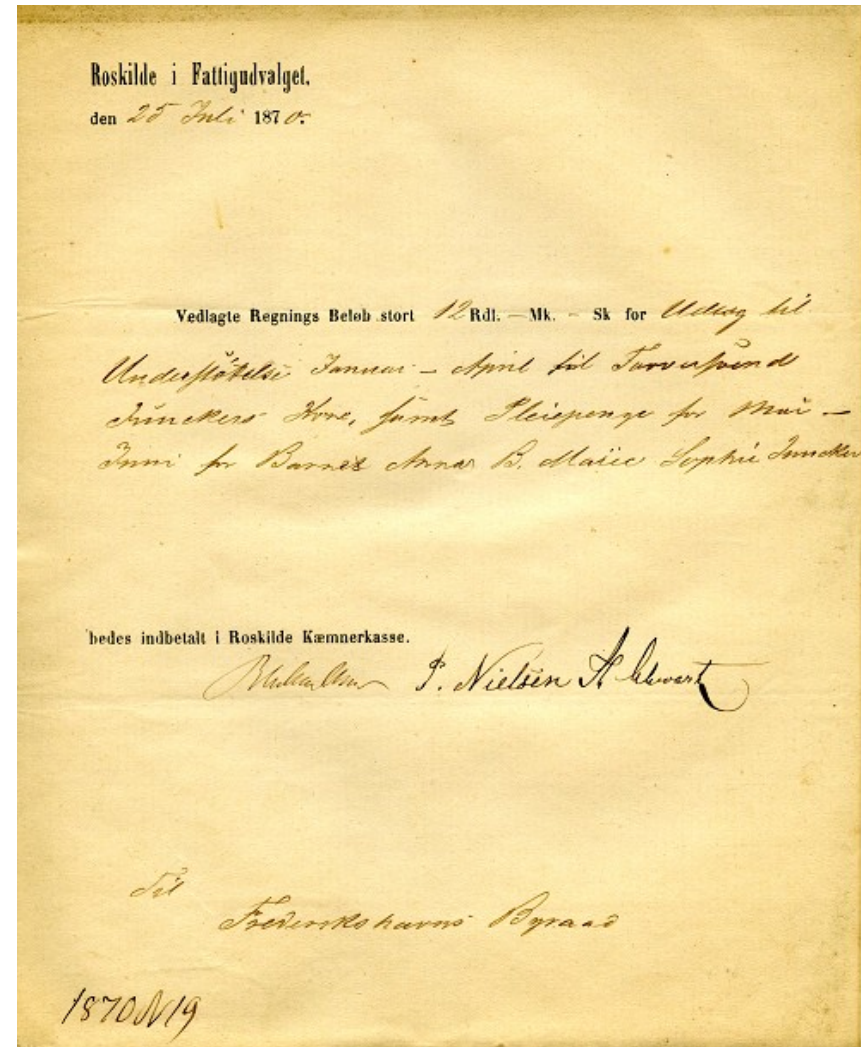 Roskilde i Fattigudvalget,
den 25 Juli 1870.
Vedlagte Regnings Beløb stort 12 Rdl. — Mk. - Sk for Udlæg til
Understøtelse Januar - April til Farversvend
Junckers Kone, samt Pleiepenge for Mai -
Juni for Barnet Anna B. Marie Sophie Juncker
bedes indbetalt i Roskilde Kæmnerkasse.
P. Nielsen
Til
Frederikshavns Byraad
1870 N 19